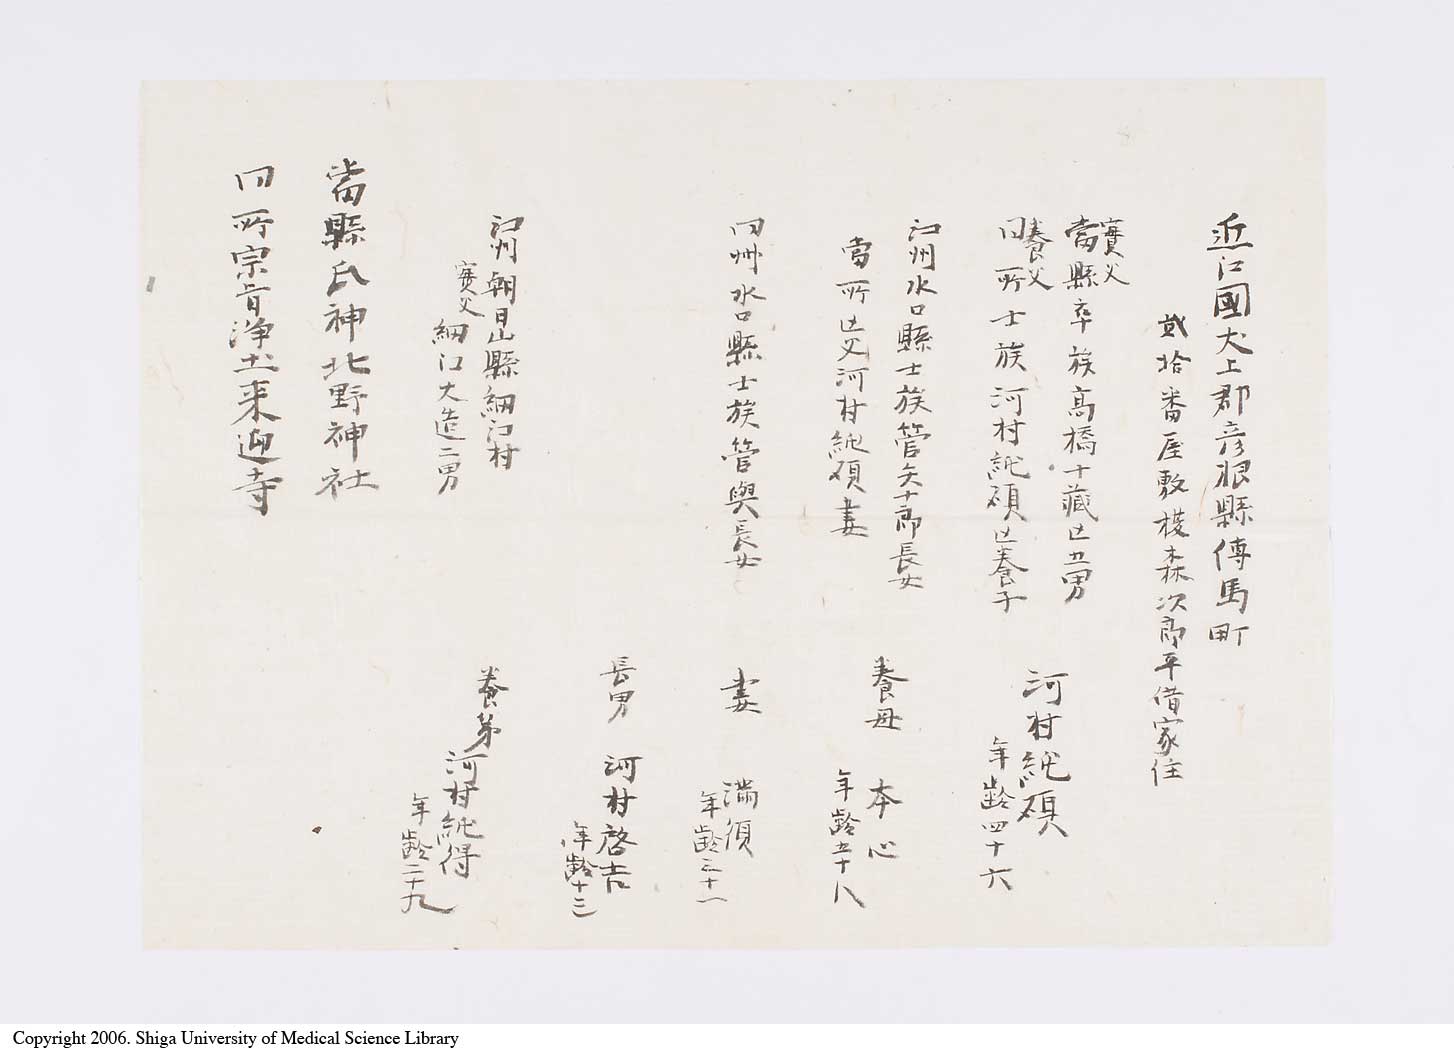 近江國犬上郡彦根縣傳馬町
貳拾番屋敷 森次郎平借家住
實父
當縣卒族高橋十藏亡五男
養父
同所士族河村純碩亡養子
河村純碩
年齢四十六
江州水口縣士族菅矢十郎長女
當所亡父河村純碩妻
養母 本心
年齢五十八
同州水口縣士族菅與長女
妻 満須
年齢三十一
長男 河村啓吉
年齢十三
江州朝日山縣細江村
實父 細江大造二男
養弟 河村純得
年齢二十九
當縣氏神北野神社
同所宗旨浄土来迎寺
Copyright 2006. Shiga University of Medical Science Library